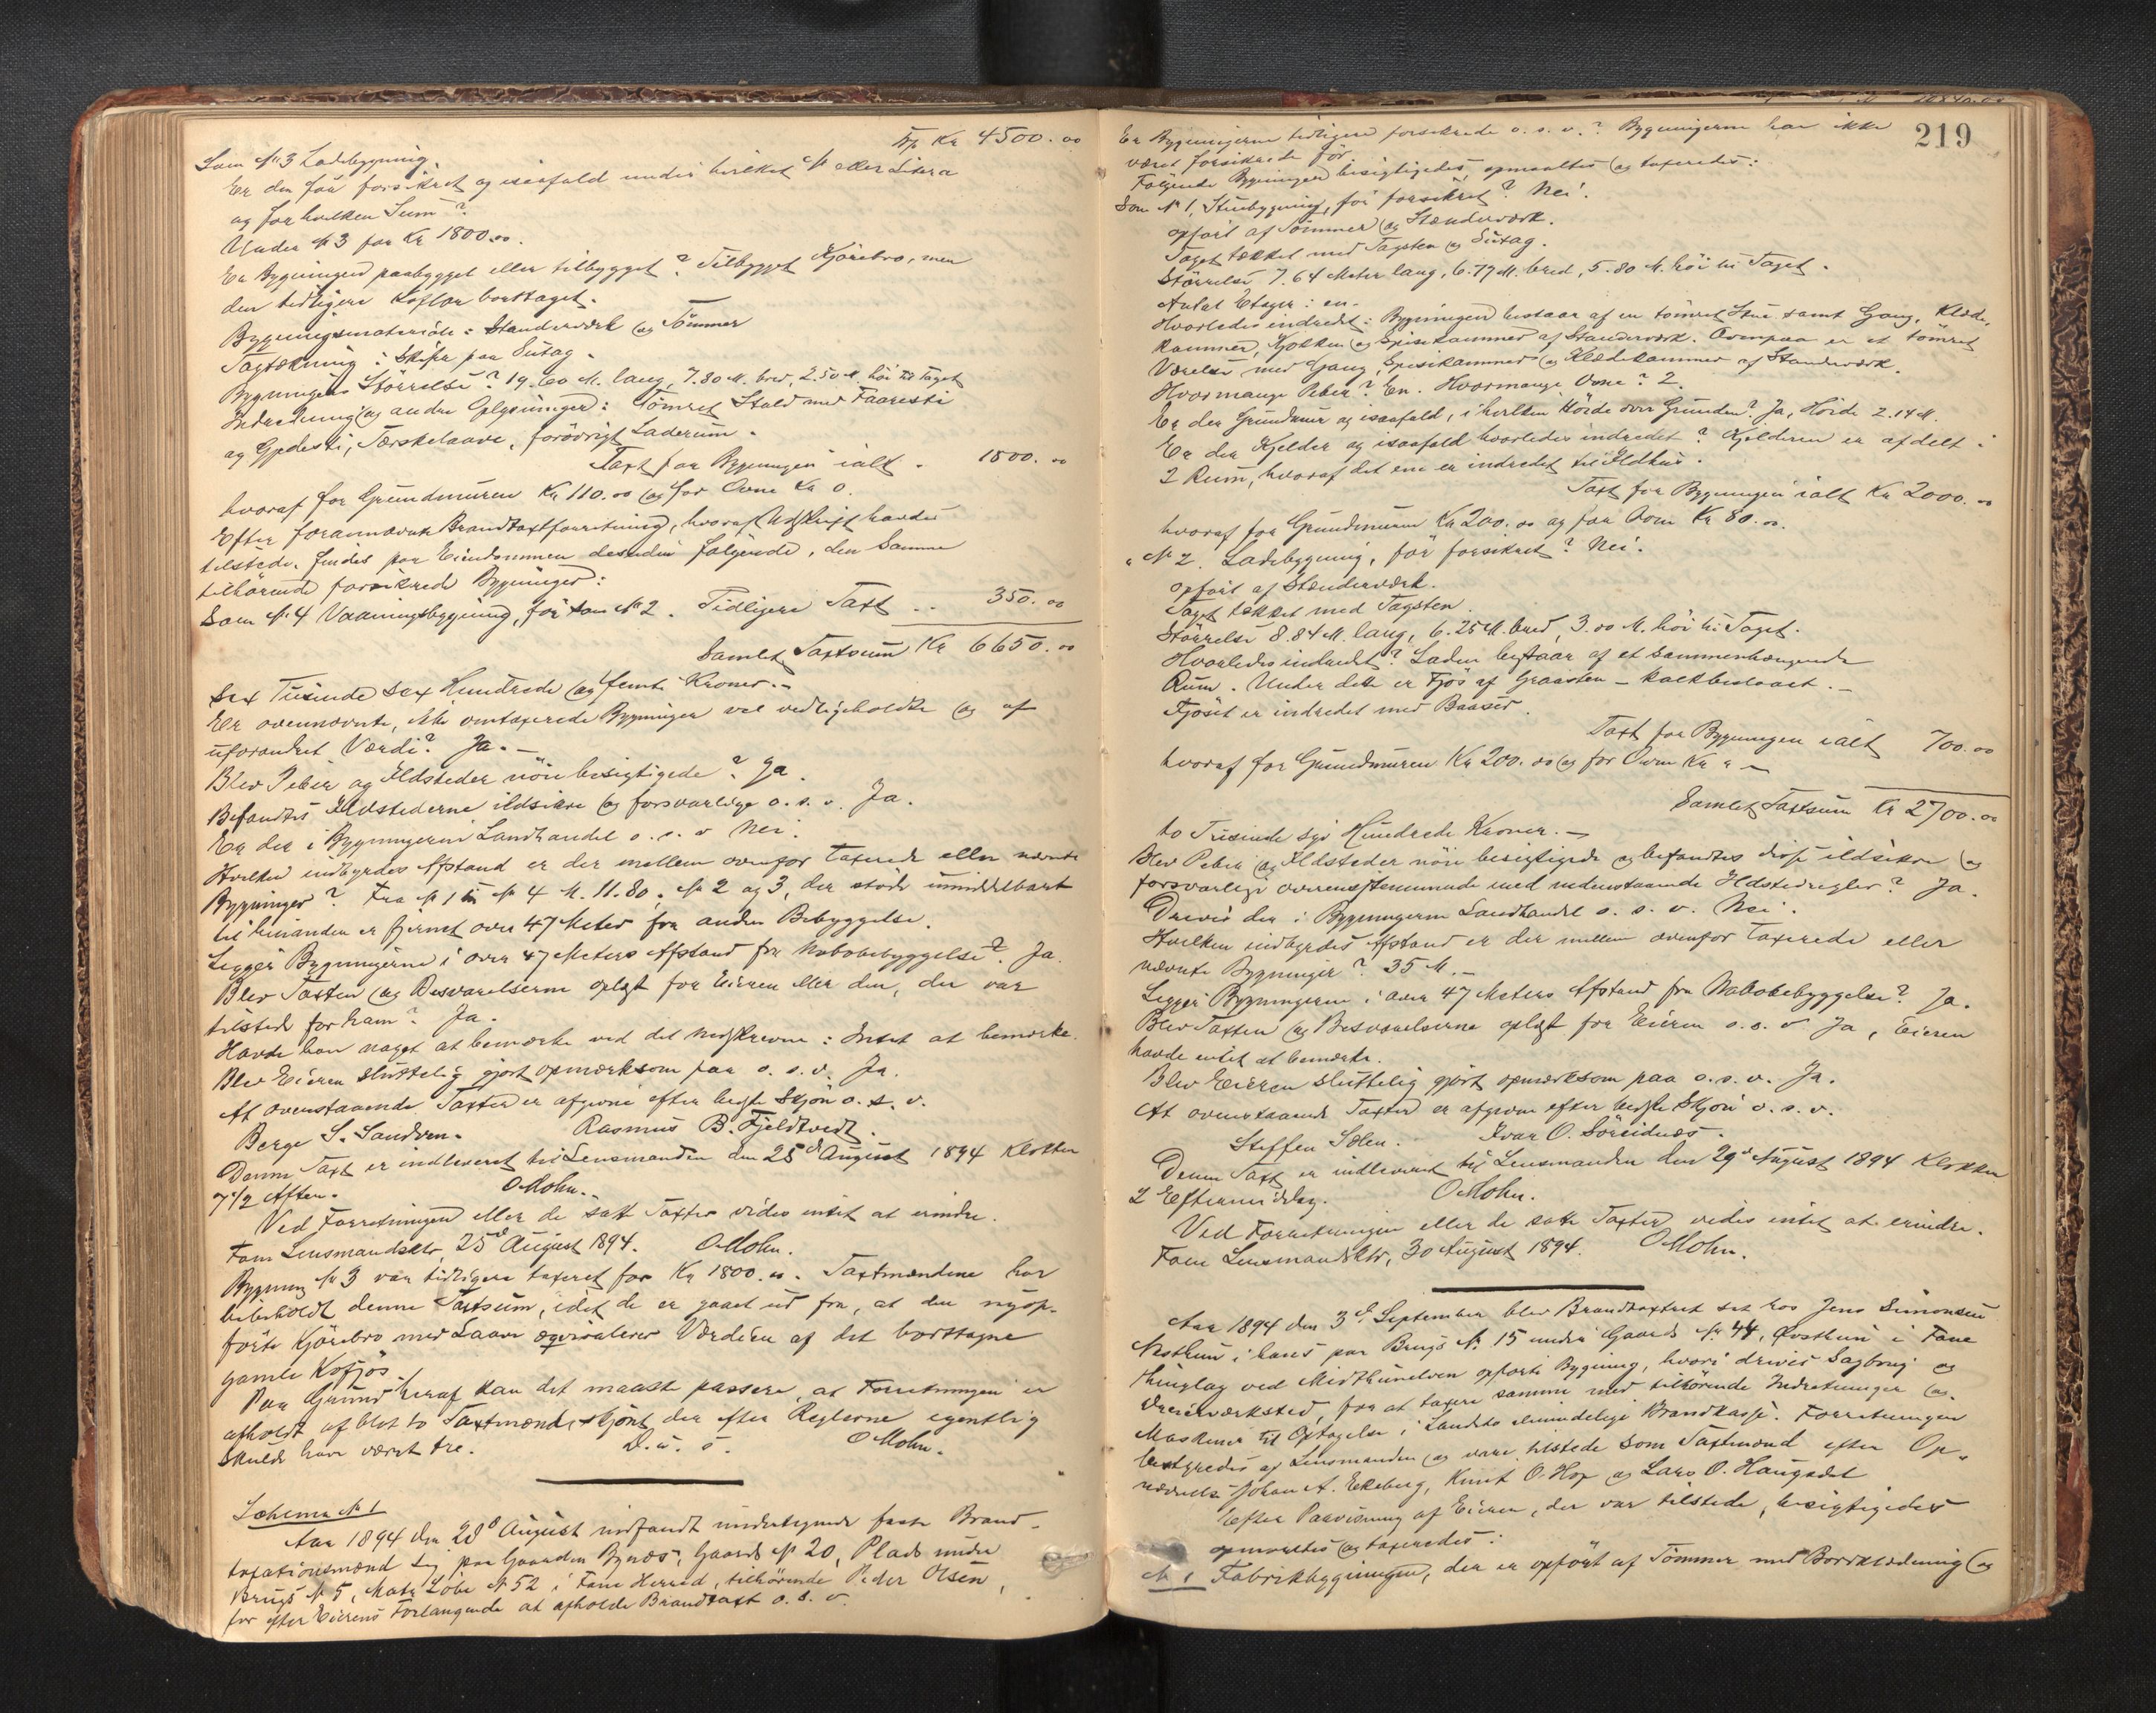 Tp. Kr 4500.00
Som No 3 Ladebygning.
Er den før forsikret og isaafald under hvilket No eller Litera
og for hvilken Sum?
Under No 3 for Kr 1800.00.
Er Bygningen paabygget eller tilbygget? Tilbygget Kjørebro, men
den tidligere Kofjøs borttaget.
Bygningsmateriale: Standerværk og Tømmer
Tagtækning: Skifer paa Sutag.
Bygningens Størrelse? 19.60 M. lang, 7.80 M. bred, 2.50 M. høi til Taget
Indredning og andre Oplysninger: Tømret Stald med Faaresti
og Gjedesti, Tærskelaave, forøvrigt Laderum.
Taxt for Bygningen ialt . 1800.00
hvoraf for Grundmuren Kr 110.00 og for Ovne Kr 0.
Efter forannævnte Brandtaxtforretning, hvoraf Udskrift havdes
tilstede, findes paa Eiendommen desuden følgende, den Samme
tilhørende forsikrede Bygninger:
Som No 4 Vaaningsbygning, før som No 2. Tidligere Taxt .. 350.00
Samlet Taxtsum Kr 6650.00
Sex Tusinde Sex Hundrede og femti Kroner.-
Er ovennævnte, ikke omtaxerede Bygninger vel vedligeholdte og af
uforandret Værdi? Ja.-
Blev Peber og Ildsteder nøie besigtigede? Ja.
Befandtes Ildstederne ildsikre og forsvarlige o. s. v. Ja.
Er der i Bygningerne Landhandel o. s. v Nei.
Hvilken indbyrdes Afstand er der mellem ovenfor taxerede eller nævnte
Bygninger? Fra No 1 til No 4 M. 11.80, No 2 og 3, der støde umiddelbart
til hinanden er fjernet over 47 Meter fra anden Bebyggelse.
Ligger Bygningerne i over 47 Meters Afstand fra Nabobebyggelse? Ja.
Blev Taxten og Besvarelserne oplæst for Eieren eller den, der var
tilstede for ham? Ja.
Havde han noget at bemærke ved det Nedskrevne: Intet at bemærke.
Blev Eieren sluttelig gjort opmærksom paa o. s. v. Ja.
At ovenstaaende Taxter er afgivne efter bedste Skjøn o. s. v.
Berge S. Sandven. Rasmus B. Fjeldtvedt.
Denne Taxt er indleveret til Lensmanden den 25de August 1894 Klokken
7 1/2 Aften. O Mohn.
Ved Forretningen eller de satte Taxter vides intet at erindre.
Fane Lensmandsktr, 25de August 1894. O Mohn.
Bygning No 3 var tidligere taxeret for Kr 1800.00. Taxtmændene har
bibeholdt denne Taxtsum, idet de er gaaet ud fra, at den nyop-
førte Kjørebro med Laave æqvivalerer Værdien af det borttagne
gamle Kofjøs.
Paa Grund heraf kan det maaske passere, at Forretningen er
afholdt af blot to Taxtmænd, skjønt der efter Reglerne egentlig
skulde have været tre. D. u. s. O Mohn.
Schema No 1
Aar 1894 den 28de August indfandt undertegnede faste Brand-
taxationsmænd sig paa Gaarden Bynæs, Gaards No 20, Plads under
Brugs No 5, Matr. Løbe No 52 i Fane Herred, tilhørende Peder Olsen,
for efter Eierens Forlangende at afholde Brandtaxt o. s. v.
219
Er Bygningerne tidligere forsikrede o. s. v.? Bygningerne har ikke
været forsikrede før
Følgende Bygninger besigtigedes, opmaaltes og taxeredes:
Som No 1, Stuebygning, før forsikret? Nei.
opført af Tømmer og Stænderværk.
Taget tækket med Tagsten og Sutag.
Størrelse 7.64 Meter lang, 6.79 M. bred, 5.80 M. høi til Taget.
Antal Etager: en.
Hvorledes indredet: Bygningen bestaar af en tømret Stue samt Gang, Klæde-
kammer, Kjøkken og Spisekammer af Standerværk. Ovenpaa er et tømret
Værelse med Gang, Spisekammer og Klædekammer af Standerværk.
Hvormange Peber? En. Hvormange Ovne? 2.
Er der Grundmur og isaafald, i hvilken Høide over Grunden? Ja, Høide 2.14 M.
Er der Kjelder og isaafald hvorledes indredet? Kjelderen er afdelt i
2 Rum, hvoraf det ene er indredet til Ildhus.
Taxt for Bygningen ialt Kr 2000.00
hvoraf for Grundmuren Kr 200.00 og for Ovne Kr 80.00.
" No 2. Ladebygning, før forsikret? Nei.
opført af Stænderværk.
Taget tækket med Tagsten.
Størrelse 8.84 M. lang, 6.25 M. bred, 3.00 M. høi til Taget.
Hvorledes indredet? Laden bestaar af et sammenhængende
Rum. Under dette er Fjøs af Graasten - kalkbeslaaet.-
Fjøset er indredet med Baaser.
Taxt for Bygningen ialt 700.00
hvoraf for Grundmuren Kr 200.00 og for Ovne Kr " -
Samlet Taxtsum Kr 2700.00
to Tusinde syv Hundrede Kroner.-
Blev Peber og Ildsteder nøie besigtigede og befandtes disse ildsikre og
forsvarlige overensstemmende med nedenstaaende Ildstedregler? Ja.
Drives der i Bygningerne Landhandel o. s. v. Nei.
Hvilken indbyrdes Afstand er der mellem ovenfor taxerede eller
nævnte Bygninger? 35 M.-
Ligger Bygningerne i over 47 Meters Afstand fra Nabobebyggelse? Ja.
Blev Taxten og Besvarelserne oplæst for Eieren o. s. v Ja, Eieren
havde intet at bemærke.
Blev Eieren sluttelig gjort opmærksom paa o. s. v. Ja.
At ovenstaaende Taxter er afgivne efter bedste Skjøn o. s. v.
Steffen Sælen. Ivar O. Søreidnæs.
Denne Taxt er indleveret til Lensmanden den 29de August 1894 Klokken
2 Eftermiddag. O Mohn.
Ved Forretningen eller de satte Taxter vides intet at erindre.
Fane Lensmandsktr, 30 August 1894. O Mohn.
Aar 1894 den 3de September blev Brandtaxtret sat hos Jens Simonsen
Nesthun i hans paa Brugs No 15 under Gaards No 44, i Fane
Thinglag ved Midthunelven opførte Bygning, hvori drives Sagbrug og
Dreierværksted, for at taxere samme med tilhørende Indretninger og
Maskiner til Optagelse i Landets Almindelige Brandkasse. Forretningen
bestyredes af Lensmanden og vare tilstede som Taxtmænd efter Op-
nævnelse Johan A. Ekeberg, Knut O. Hop og Lars O. Haugsdal
Efter Paavisning af Eieren, der var tilstede, besigtigedes
opmaaltes og taxeredes:
No 1 Fabrikbygningen, der er opført af Tømmer med Bordklædning og